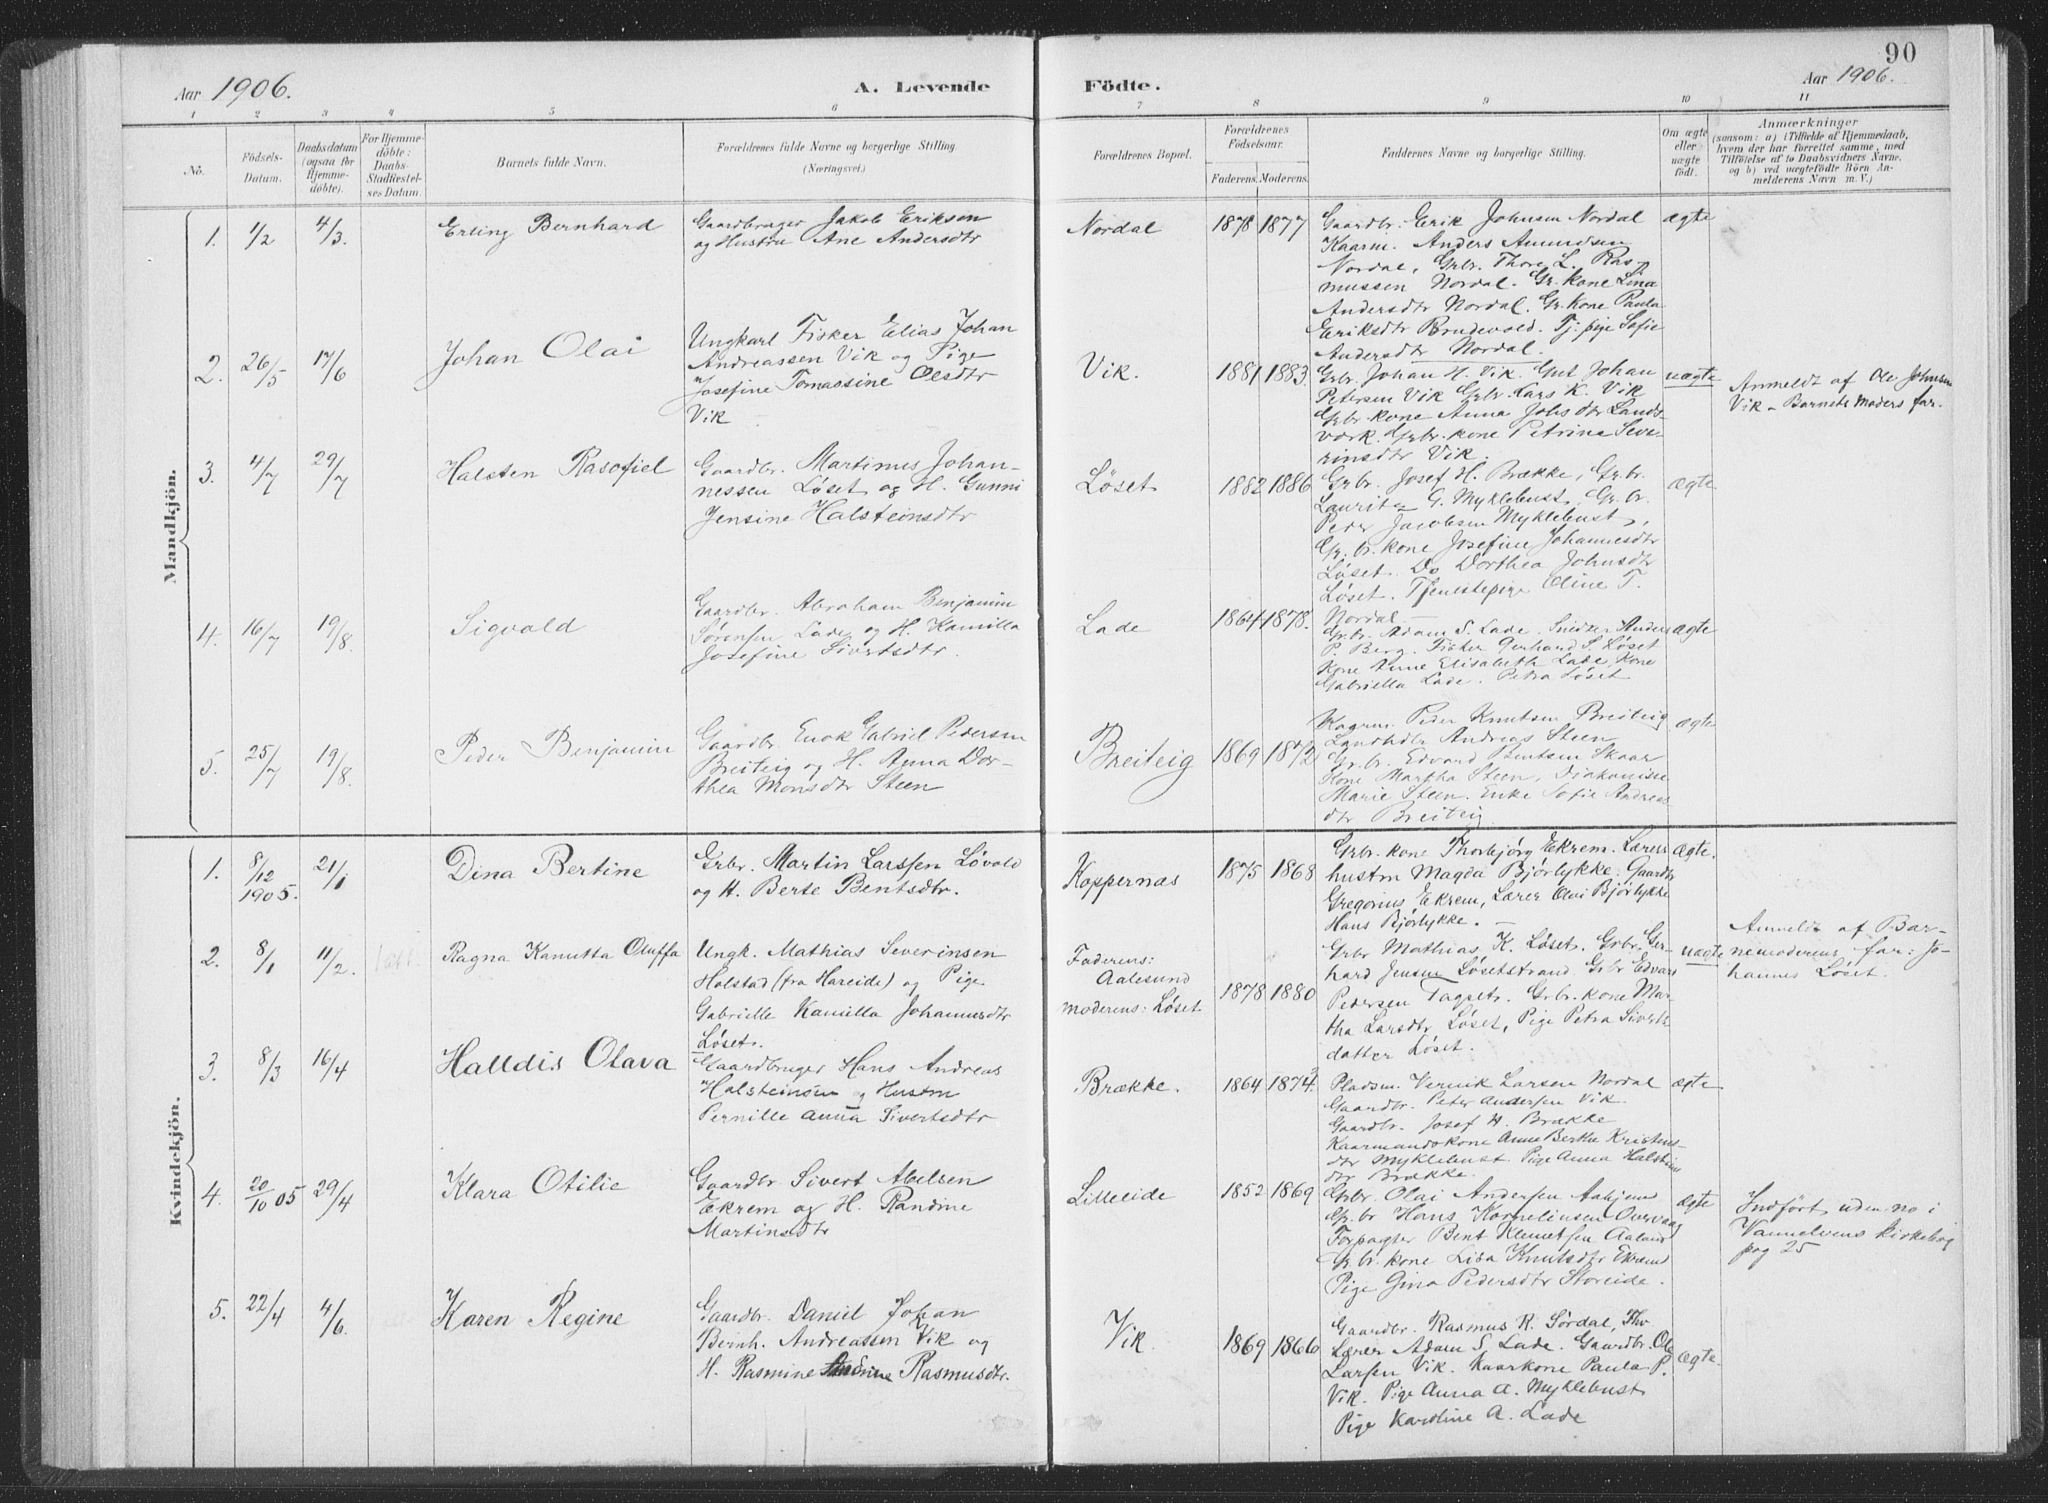 90
Aar 1906.
A. Levende
Födte.
Aar 1906.
1 2 3 4 5 6 7 8 9 10 11
No.
Födsels-
Datum.
Daabsdatum
(ogsaa för
Hjemme-
döbte).
For Hjemme-
döbte:
Daabs-
Stadfæstel-
ses Datum.
Barnets fulde Navn.
Forældrenes fulde Navne og borgerlige Stilling.
(Næringsvei.)
Forældrenes Bopæl.
Forældrenes
Födselsaar.
Faderens. Moderens.
Faddernes Navne og borgerlige Stilling.
Om ægte
eller
uægte
födt.
Anmærkninger
(saasom: a) i Tilfælde af Hjemmedaab,
hvem der har forrettet samme, med
Tilföielse af to Daabsvidners Navne,
og b) ved uægtefödte Börn An-
melderens Navn m. V.)
Mandkjön.
1. 1/2 4/3. Erling Bernhard
Gaardbruger Jakob Eriksen
og Hustru Ane Andersdtr
Nordal 1878 1877
Gaardbr. Erik Johnsen Nordal
Kaarm. Anders Amundsen
Nordal, Grbr. Thore L. Ras-
mussen Nordal. Gr. kone Lina
Andersdtr Nordal. Gr. kone Paula
Eriksdtr Brudevold. Tj. pige Sofie
Andersdtr Nordal.
ægte
2. 26/5 17/6 Johan Olai
Ungkarl Fisker Elias Johan
Andreassen Vik og Pige
Josefine Tomassine Olsdtr
Vik
Vik. 1881 1883.
Grbr. Johan H. Vik. Gut Johan
Petersen Vik Grbr. Lars K. Vik
Grbr. kone Anna Johs dtr Lands-
værk. Grbr. kone Petrine Seve-
rinsdtr Vik.
uægte
Anmeldt af Ole Johnsen
Vik - Barnets Moders far.
3. 4/7 29/7 Halsten Rasofiel
Gaardbr. Martinus Johan-
nessen Løset og H. Gunni
Jensine Halsteinsdtr
Løset 1882 1886
Grbr. Josef H. Brække, Gr. br.
Laurits G. Myklebust, Gr. br.
Peder Jacobsen Myklebust,
Gr. br. kone Josefine Johannesdtr
Løset. Do Dorthea Johnsdtr
Løset. Tjenestepige Oline T.
Nordal
ægte
4. 16/7 19/8. Sigvald
Gaardbr. Abraham Benjamin
Sørensen Lade og H. Kamilla
Josefine Sivertsdtr.
Lade 1864 1878.
Gr. br. Adam S. Lade. Snedker Anders
P. Berg. Fisker Gerhard S. Løset
Kone Anne Elisabeth Lade, Kone
Gabriella Lade. Petra Løset
ægte
5. 25/7 19/8. Peder Benjamin
Gaardbr. Enok Gabriel Pedersen
Breiteig og H. Anna Dor-
thea Monsdtr Steen
Breiteig 1869 1872
Kaarm. Peder Knutsen Breiteig
Landhdlr Andreas Steen
Gr. br. Edvard Bentsen Skaar
Kone Martha Steen, Diakonisse
Marie Steen. Enke Sofie Andreas
dtr Breiteig.
ægte
Kvindekjön.
1. 8/12 1905. 21/1 Dina Bertine
Grbr. Martin Larssen Løvold
og H. Berte Bentsdtr.
Koppernæs 1875 1868
Grbr. kone Thorbjørg Ekrem. Lærers
hustru Magda Bjørlykke. Gaardbr
Gregorius Ekrem, Lærer Olai Bjørlykke
Hans Bjørlykke.
ægte.
2. 8/1 11/2. Ragna Kanutta Oluffa
Ungk. Mathias Severinsen
Holstad (fra Hareide) og Pige
Gabrielle Kamilla Johannesdtr
Løset.
Faderens:
Aalesund
Moderens: Løset
1878 1880
Grbr Mathias K. Løset. Grbr. Ger-
hard Jensen Løsetstrand Grbr Edvard
Pedersen Tagset. Grbr. kone Mar-
tha Larsdtr Løset, Pige Petra Siverts
datter Løset.
uægte
Anmeldt af Bar-
nemoderens far: Jo-
hannes Løset.
3. 8/3 16/4 Halldis Olava
Gaardbruger Hans Andreas
Halsteinsen og Hustru
Pernille Anna Sivertsdtr
Brække. 1864 1874.
Pladsm. Vernik Larsen Nordal
Gaardbr. Peter Andersen Vik
Gaardbr. Josef H. Brække
Kaarmandskone Anne Berthe Kristens-
dtr Myklebust. Pige Anna Halsteins
dtr Brække.
ægte
4. 20/10 05 29/4 Klara Otilie
Gaardbr Sivert Abelsen
Ekrem og H. Randine
Martinsdtr
Lilleeide 1852 1869
Grbr. Olai Andersen Aahjem
Gr. br Hans Kornelinsen Overvaag
Forpagter Bent Klemetsen Aaland
Gr. br. kone Lisa Knutsdtr Ekrem
Pige Gina Pedersdtr Storeide.
ægte
Indført uden no i
Vannelvens kirkebog
pag 25
5. 22/4 4/6. Karen Regine
Gaardbr. Daniel Johan
Bernh. Andreassen Vik og
H. Rasmine Rasmusdtr.
Vik 1869 1866
Gaardbr. Rasmus R. Sørdal, Thv
Lærer Adam S. Lade. Gaardbr. Ole
Larsen Vik. Kaarkone Paula P.
Vik. Pige Anna A. Myklebust
Pige Karoline A. Lade
ægte.